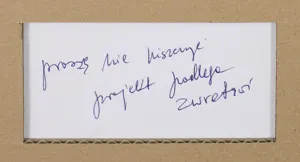 proszę nie niszczyć
projekt podlega
zwrotowi